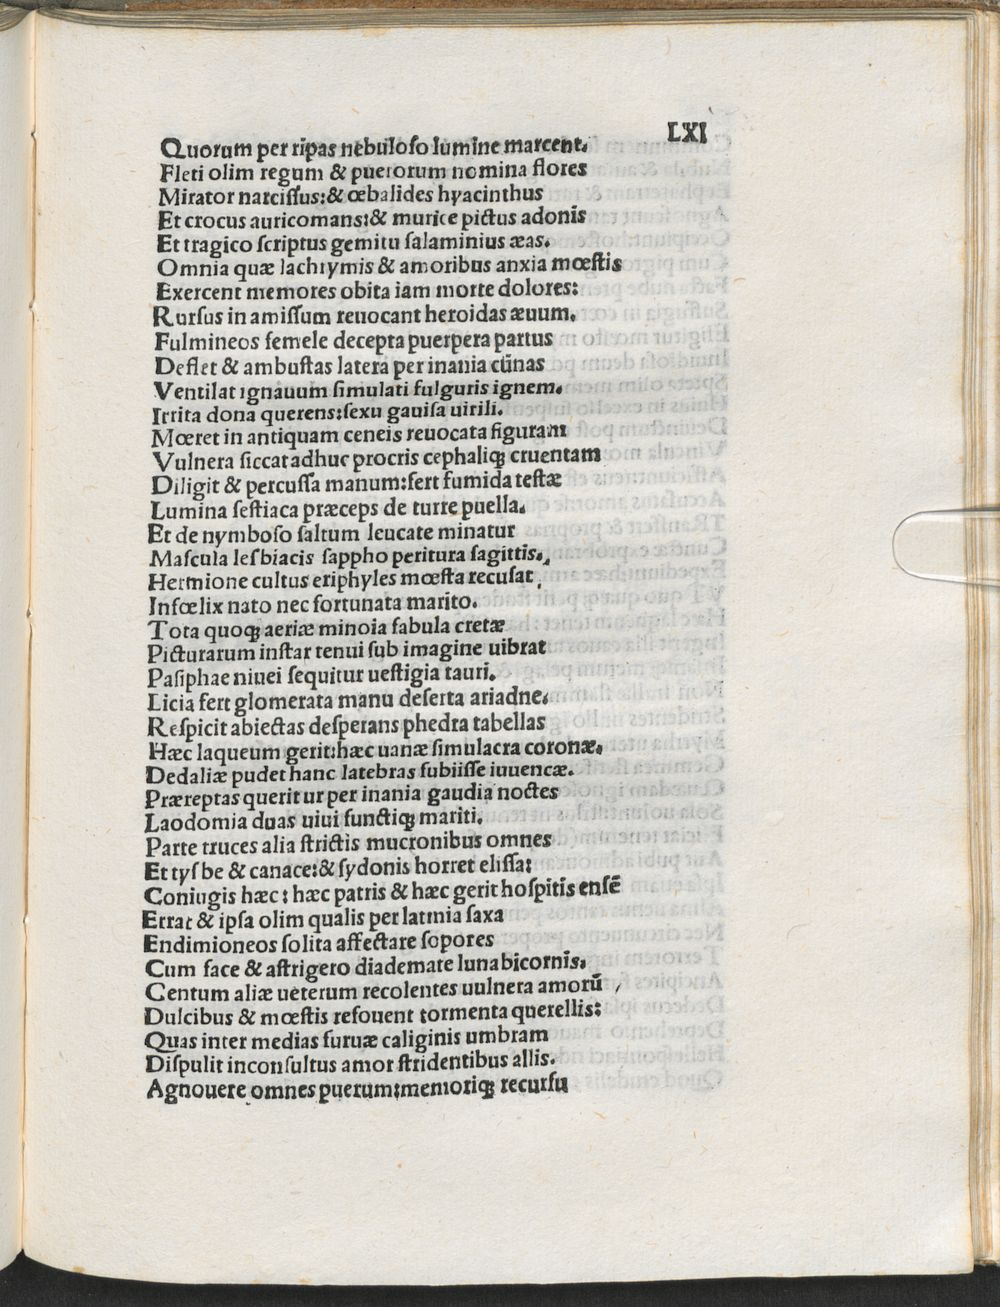 LXI
Quorum per ripas nebuloſo lumine marcent.
Fleti olim regum & puerorum nomina flores
Mirator narciſſus:& œbalides hyacinthus
Et crocus auricomans:& murice pictus adonis
Et tragico ſcriptus gemitu ſalaminius æas.
Omnia quæ lachrymis & amoribus anxia mœſtis
Exercent memores obita iam morte dolores:
Rurſus in amiſſum reuocant heroidas æuum.
Fulmineos ſemele decepta puerpera partus
Deflet & ambuſtas latera per inania cũnas
Ventilat ignauum ſimulati fulguris ignem.
Irrita dona querens:ſexu gauiſa uirili.
Mœret in antiquam ceneis reuocata figuram
Vulnera ſiccat adhuc procris cephaliqȝ cruentam
Diligit & percuſſa manum:fert fumida teſtæ
Lumina ſeſtiaca præceps de turre puella.
Et de nymboſo ſaltum leucate minatur
Maſcula leſbiacis ſappho peritura ſagittis.
Hermione cultus eriphyles mœſta recuſat
Infœlix nato nec fortunata marito.
Tota quoqȝ aeriæ minoia fabula cretæ
Picturarum inſtar tenui ſub imagine uibrat
Paſiphae niuei ſequitur ueſtigia tauri.
Licia fert glomerata manu deſerta ariadne.
Reſpicit abiectas deſperans phedra tabellas
Hæc laqueum gerit:hæc uanæ ſimulacra coronæ.
Dedaliæ pudet hanc latebras ſubiiſſe iuuencæ.
Præreptas queritur per inania gaudia noctes
Laodomia duas uiui functiqȝ mariti.
Parte truces alia ſtrictis mucronibus omnes
Et tyſbe & canace:& ſydonis horret eliſſa:
Coniugis hæc: hæc patris & hæc gerit hoſpitis enſẽ
Errat & ipſa olim qualis per latmia ſaxa
Endimioneos ſolita affectare ſopores
Cum face & aſtrigero diademate luna bicornis.
Centum aliæ ueterum recolentes uulnera amorũ
Dulcibus & mœſtis refouent tormenta querellis:
Quas inter medias furuæ caliginis umbram
Diſpulit inconſultus amor ſtridentibus allis.
Agnouere omnes puerum:memoriqȝ recurſu